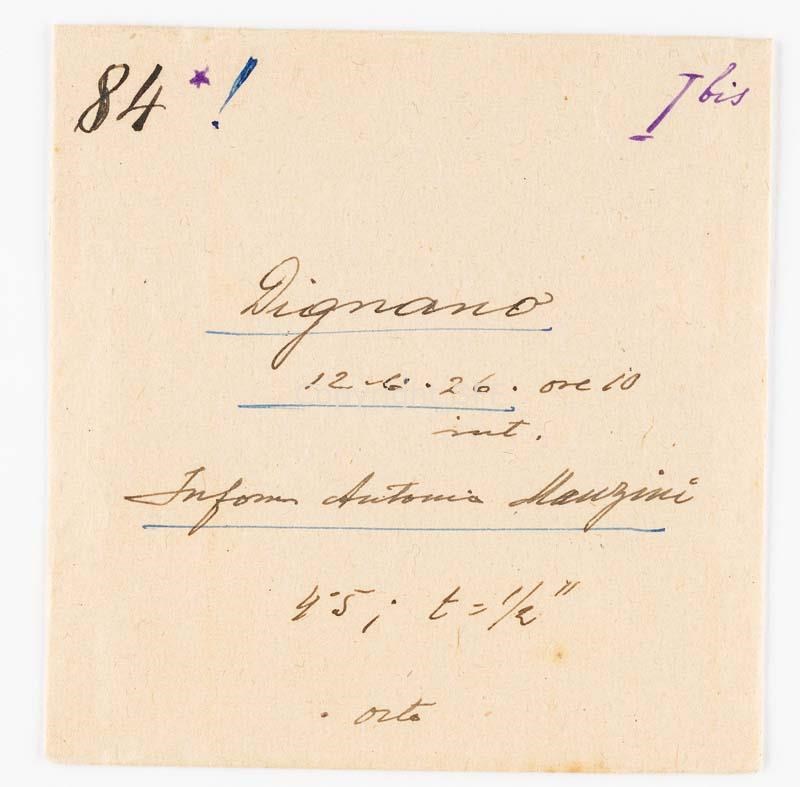 84 *! I bis
Dignano
12 · 6 · 26 · ore 10
int.
Inform Antonio Manzini
4·5; t = 1/2"
orto